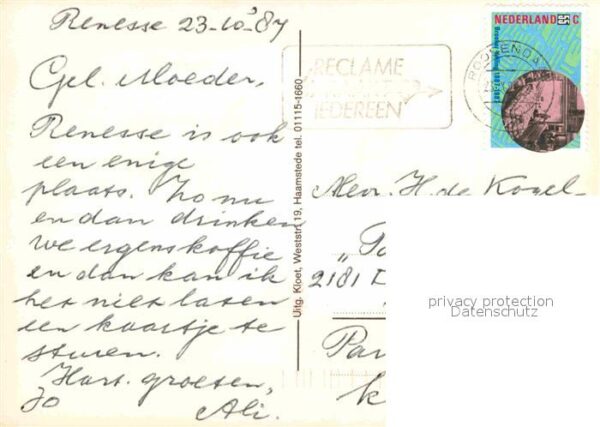 Renesse 23-10-'87
Gel. Moeder,
Renesse is ook
een enige
plaats. Zo nu
en dan drinken
we ergens koffie
en dan kan ik
het niet laten
een kaartje te
sturen.
Hart. groeten,
Jo Ali.
Uitg. Kloet, Weststr. 19, Haamstede tel. 01115-1660
RECLAME
IEDEREEN
ROOSENDA
NEDERLAND 55 C
Mevr. H. de Kogel-
2181
privacy protection
Datenschutz